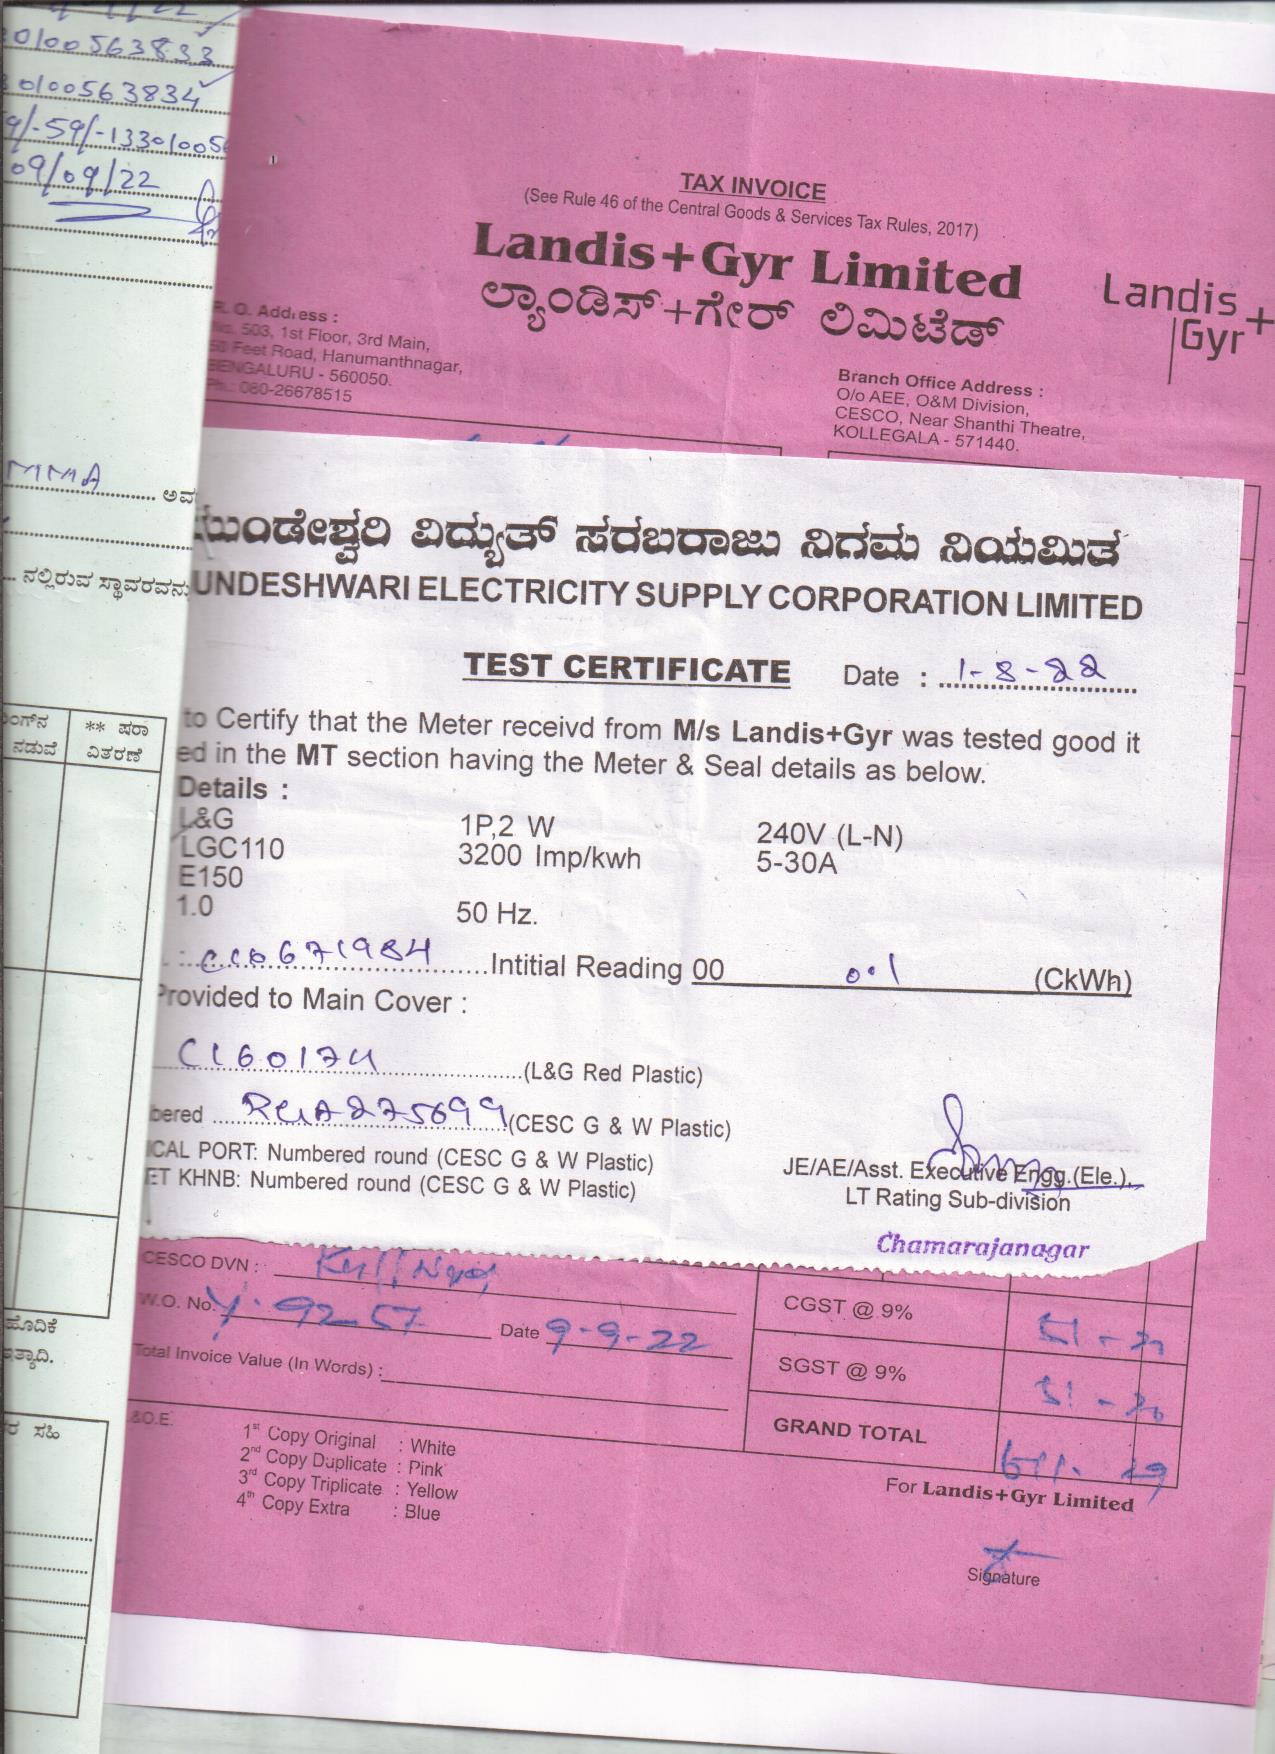 0100563833
0100563834
09/09/22
TAX INVOICE
(See Rule 46 of the Central Goods & Services Tax Rules, 2017)
Landis+Gyr Limited
ಲ್ಯಾಂಡಿಸ್+ಗೇರ್ ಲಿಮಿಟೆಡ್
Landis+
Gyr
R. O. Address :
No. 503, 1st Floor, 3rd Main,
50 Feet Road, Hanumanthnagar,
BENGALURU - 560050.
Ph.: 080-26678515
Branch Office Address :
O/o AEE, O&M Division,
CESCO, Near Shanthi Theatre,
KOLLEGALA - 571440.
MMA ಅವ
ನಲ್ಲಿರುವ ಸ್ಥಾವರವನು
** ಷರಾ
ನಡುವೆ ವಿತರಣೆ
ಹೊದಿಕೆ
ಇತ್ಯಾದಿ.
ಸಹಿ
ಮುಂಡೇಶ್ವರಿ ವಿದ್ಯುತ್ ಸರಬರಾಜು ನಿಗಮ ನಿಯಮಿತ
UNDESHWARI ELECTRICITY SUPPLY CORPORATION LIMITED
TEST CERTIFICATE Date : 1-8-22
to Certify that the Meter receivd from M/s Landis+Gyr was tested good it
ed in the MT section having the Meter & Seal details as below.
Details :
L&G 1P,2 W 240V (L-N)
LGC110 3200 Imp/kwh 5-30A
E150
1.0 50 Hz.
671984 Intitial Reading 00 0.1 (CkWh)
Provided to Main Cover :
(L&G Red Plastic)
bered 275699 (CESC G & W Plastic)
ICAL PORT: Numbered round (CESC G & W Plastic)
ET KHNB: Numbered round (CESC G & W Plastic)
JE/AE/Asst. Executive Engg.(Ele.),
LT Rating Sub-division
Chamarajanagar
CESCO DVN :
W.O. No. Date 9-9-22
Total Invoice Value (In Words) :
CGST @ 9%
SGST @ 9%
GRAND TOTAL
&O.E.
1st Copy Original : White
2nd Copy Duplicate : Pink
3rd Copy Triplicate : Yellow
4th Copy Extra : Blue
For Landis+Gyr Limited
Signature